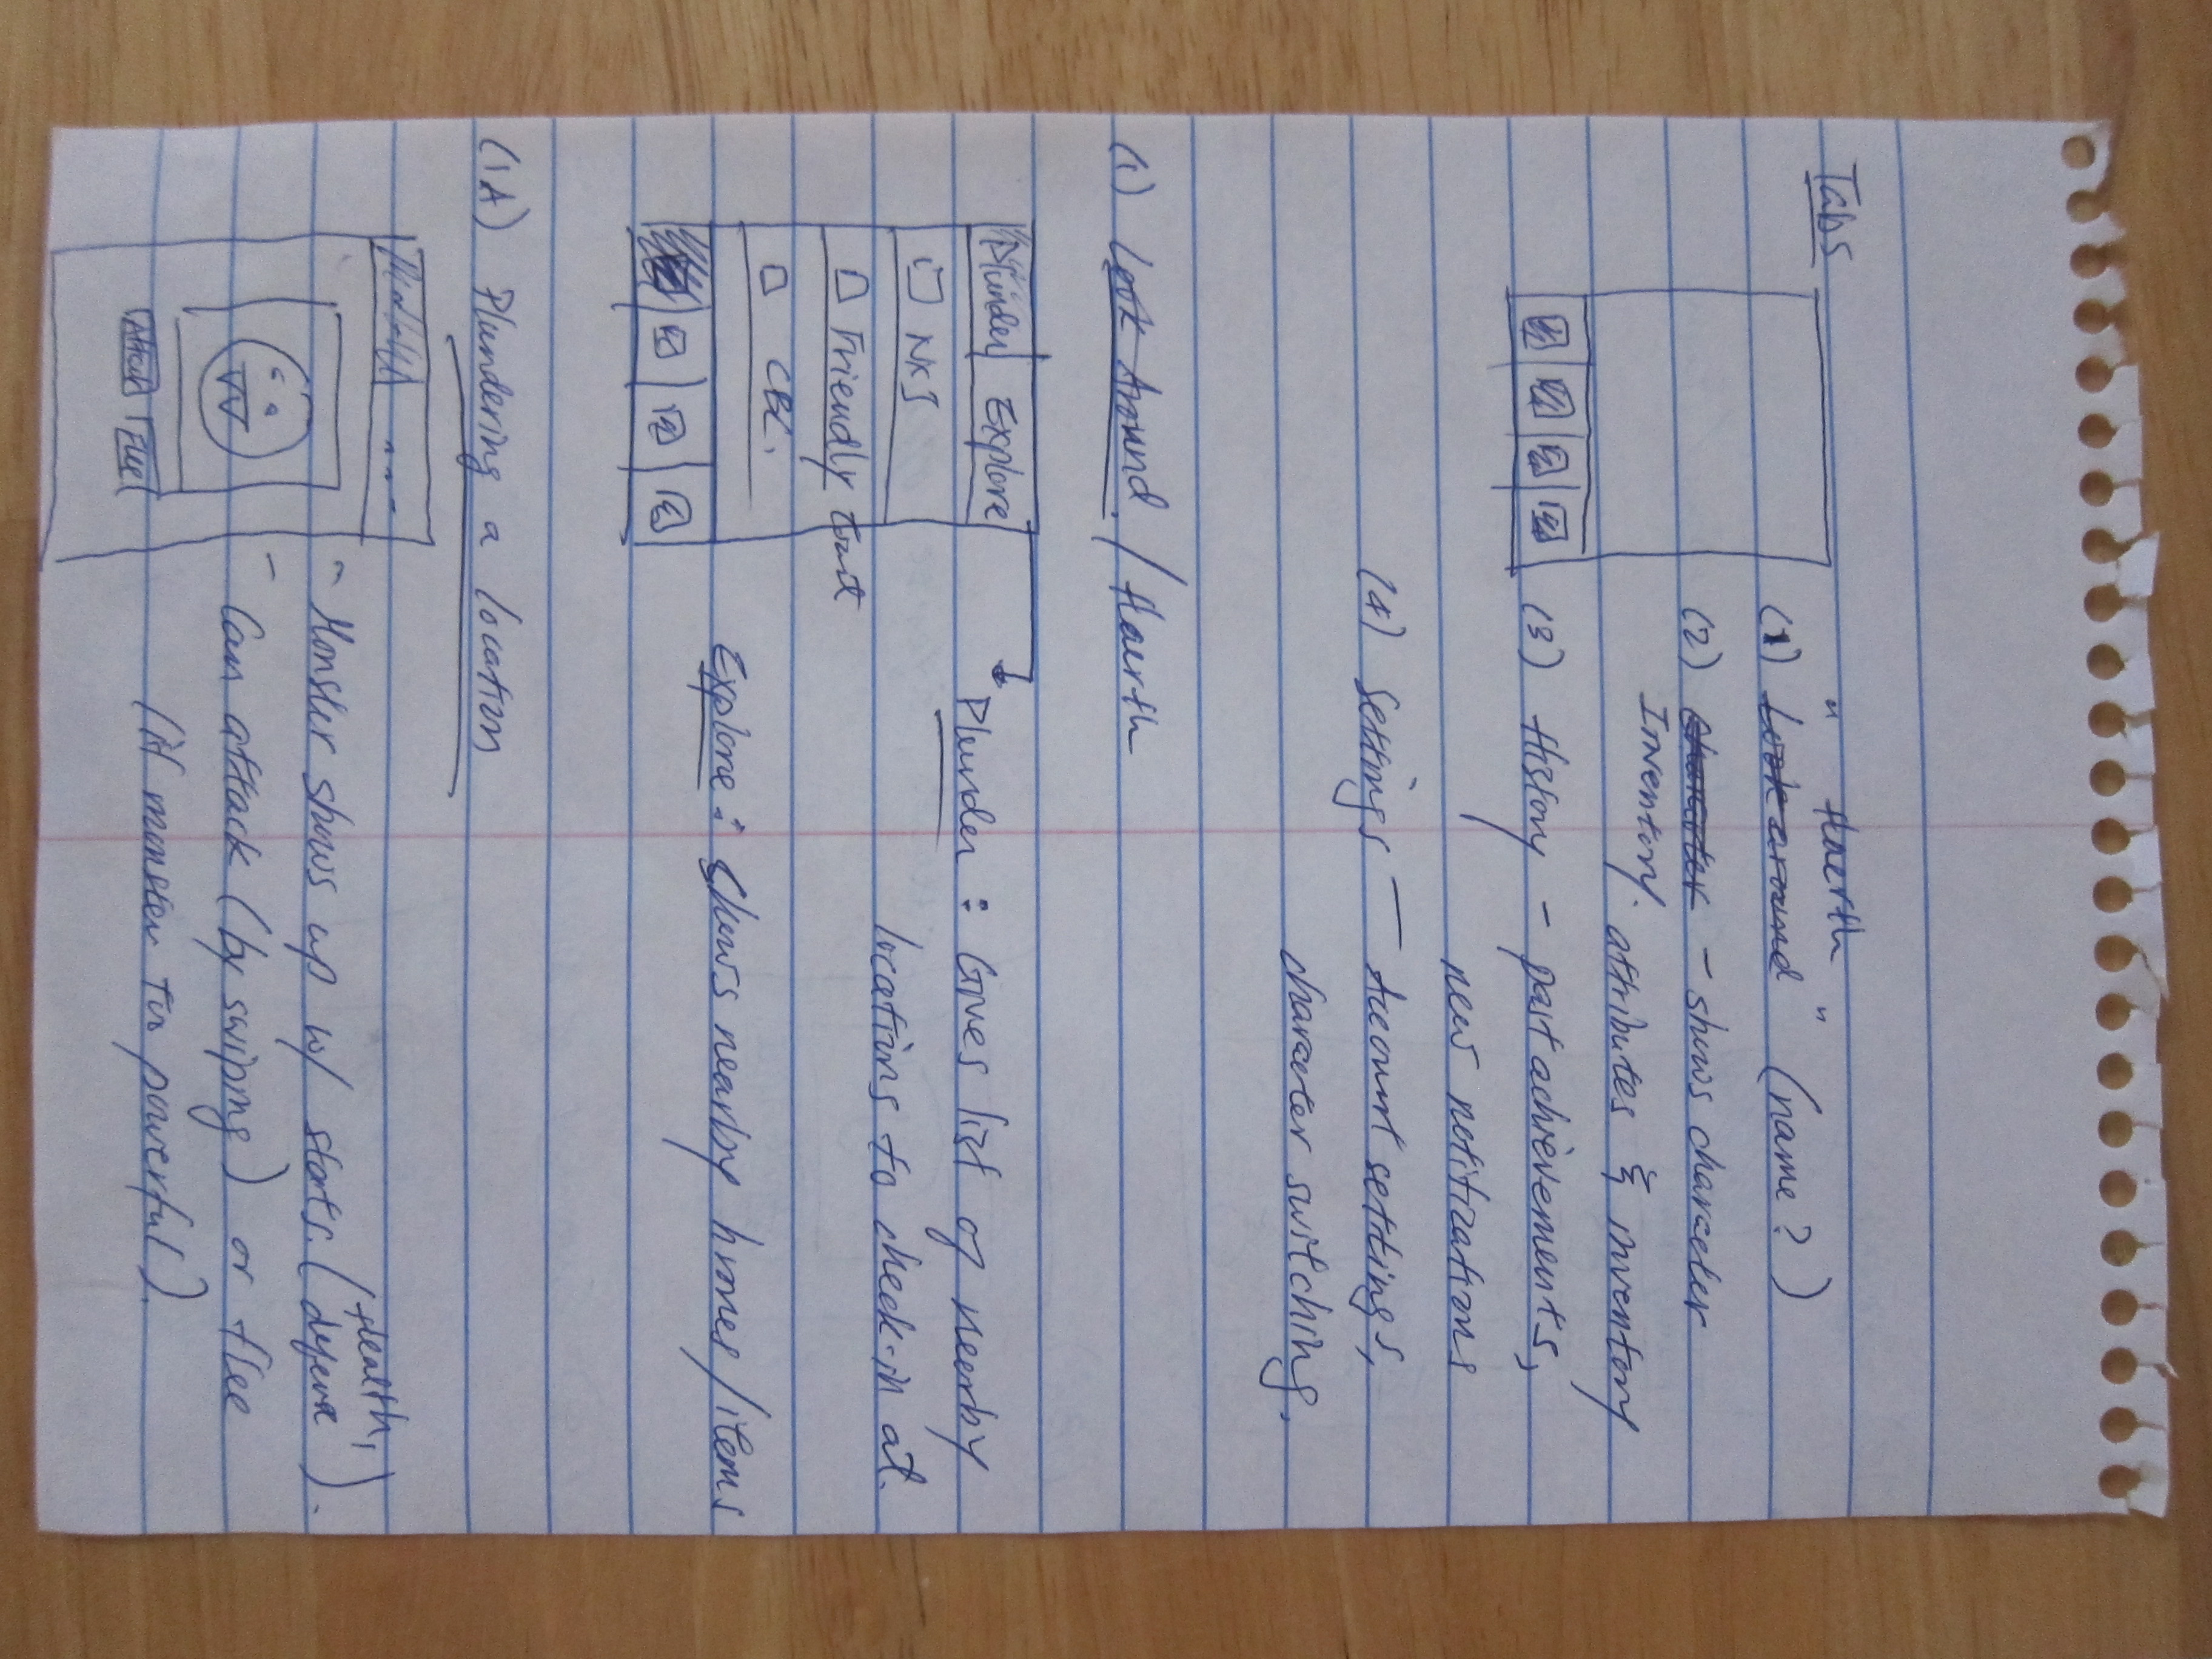 Tabs
" Haerth "
(1) Look around (name?)
(2) Character - shows character
Inventory. attributes & inventory
(3) History - past achievements,
new notifizations
(4) Settings - Account settings,
character switching.
(1) Look Around. / Haerth
Plunder Explore
NKJ
Friendly Toast
CBC.
Plunder : Gives list of nearby
locations to check-in at.
Explore : Shows nearby homes/items
(1A) Plundering a location
...
- Monster shows up w/ stats. (Health, defense).
- Can attack (by swiping) or flee
(if monster too powerful).
Attack Flee